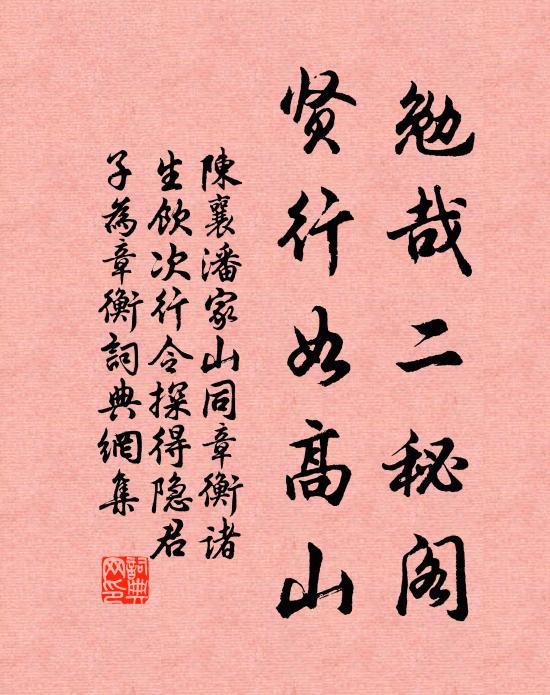 勉哉二秘阁
贤行如高山
陳襄潘家山同章衡诸
生飲次行令探得隐君
子為章衡詞典網集
詞典網印